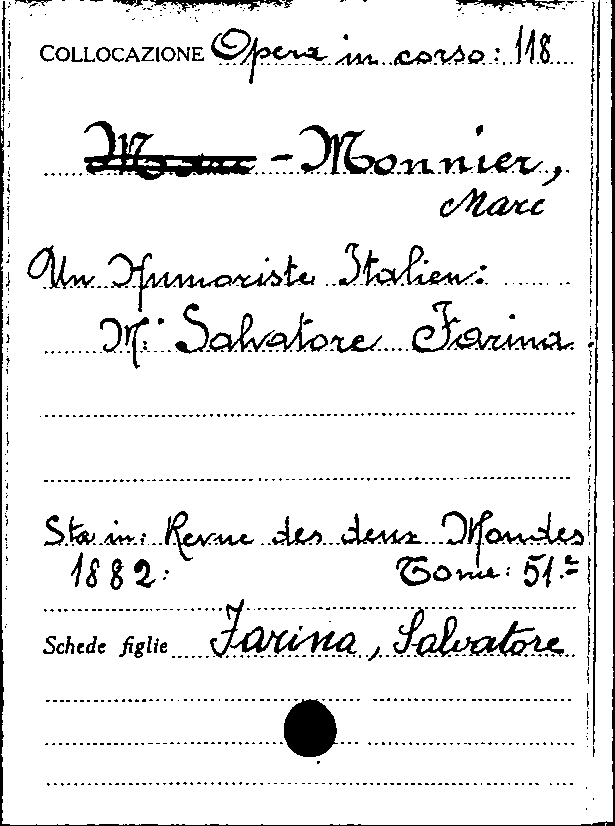 COLLOCAZIONE Opera in corso: 118
Marc - Monnier,
Marc
Un Humoriste Italien:
M.r Salvatore Farina.
Sta in: Revue des deux Mondes
1882: Tome: 51.e
Schede figlie Farina, Salvatore